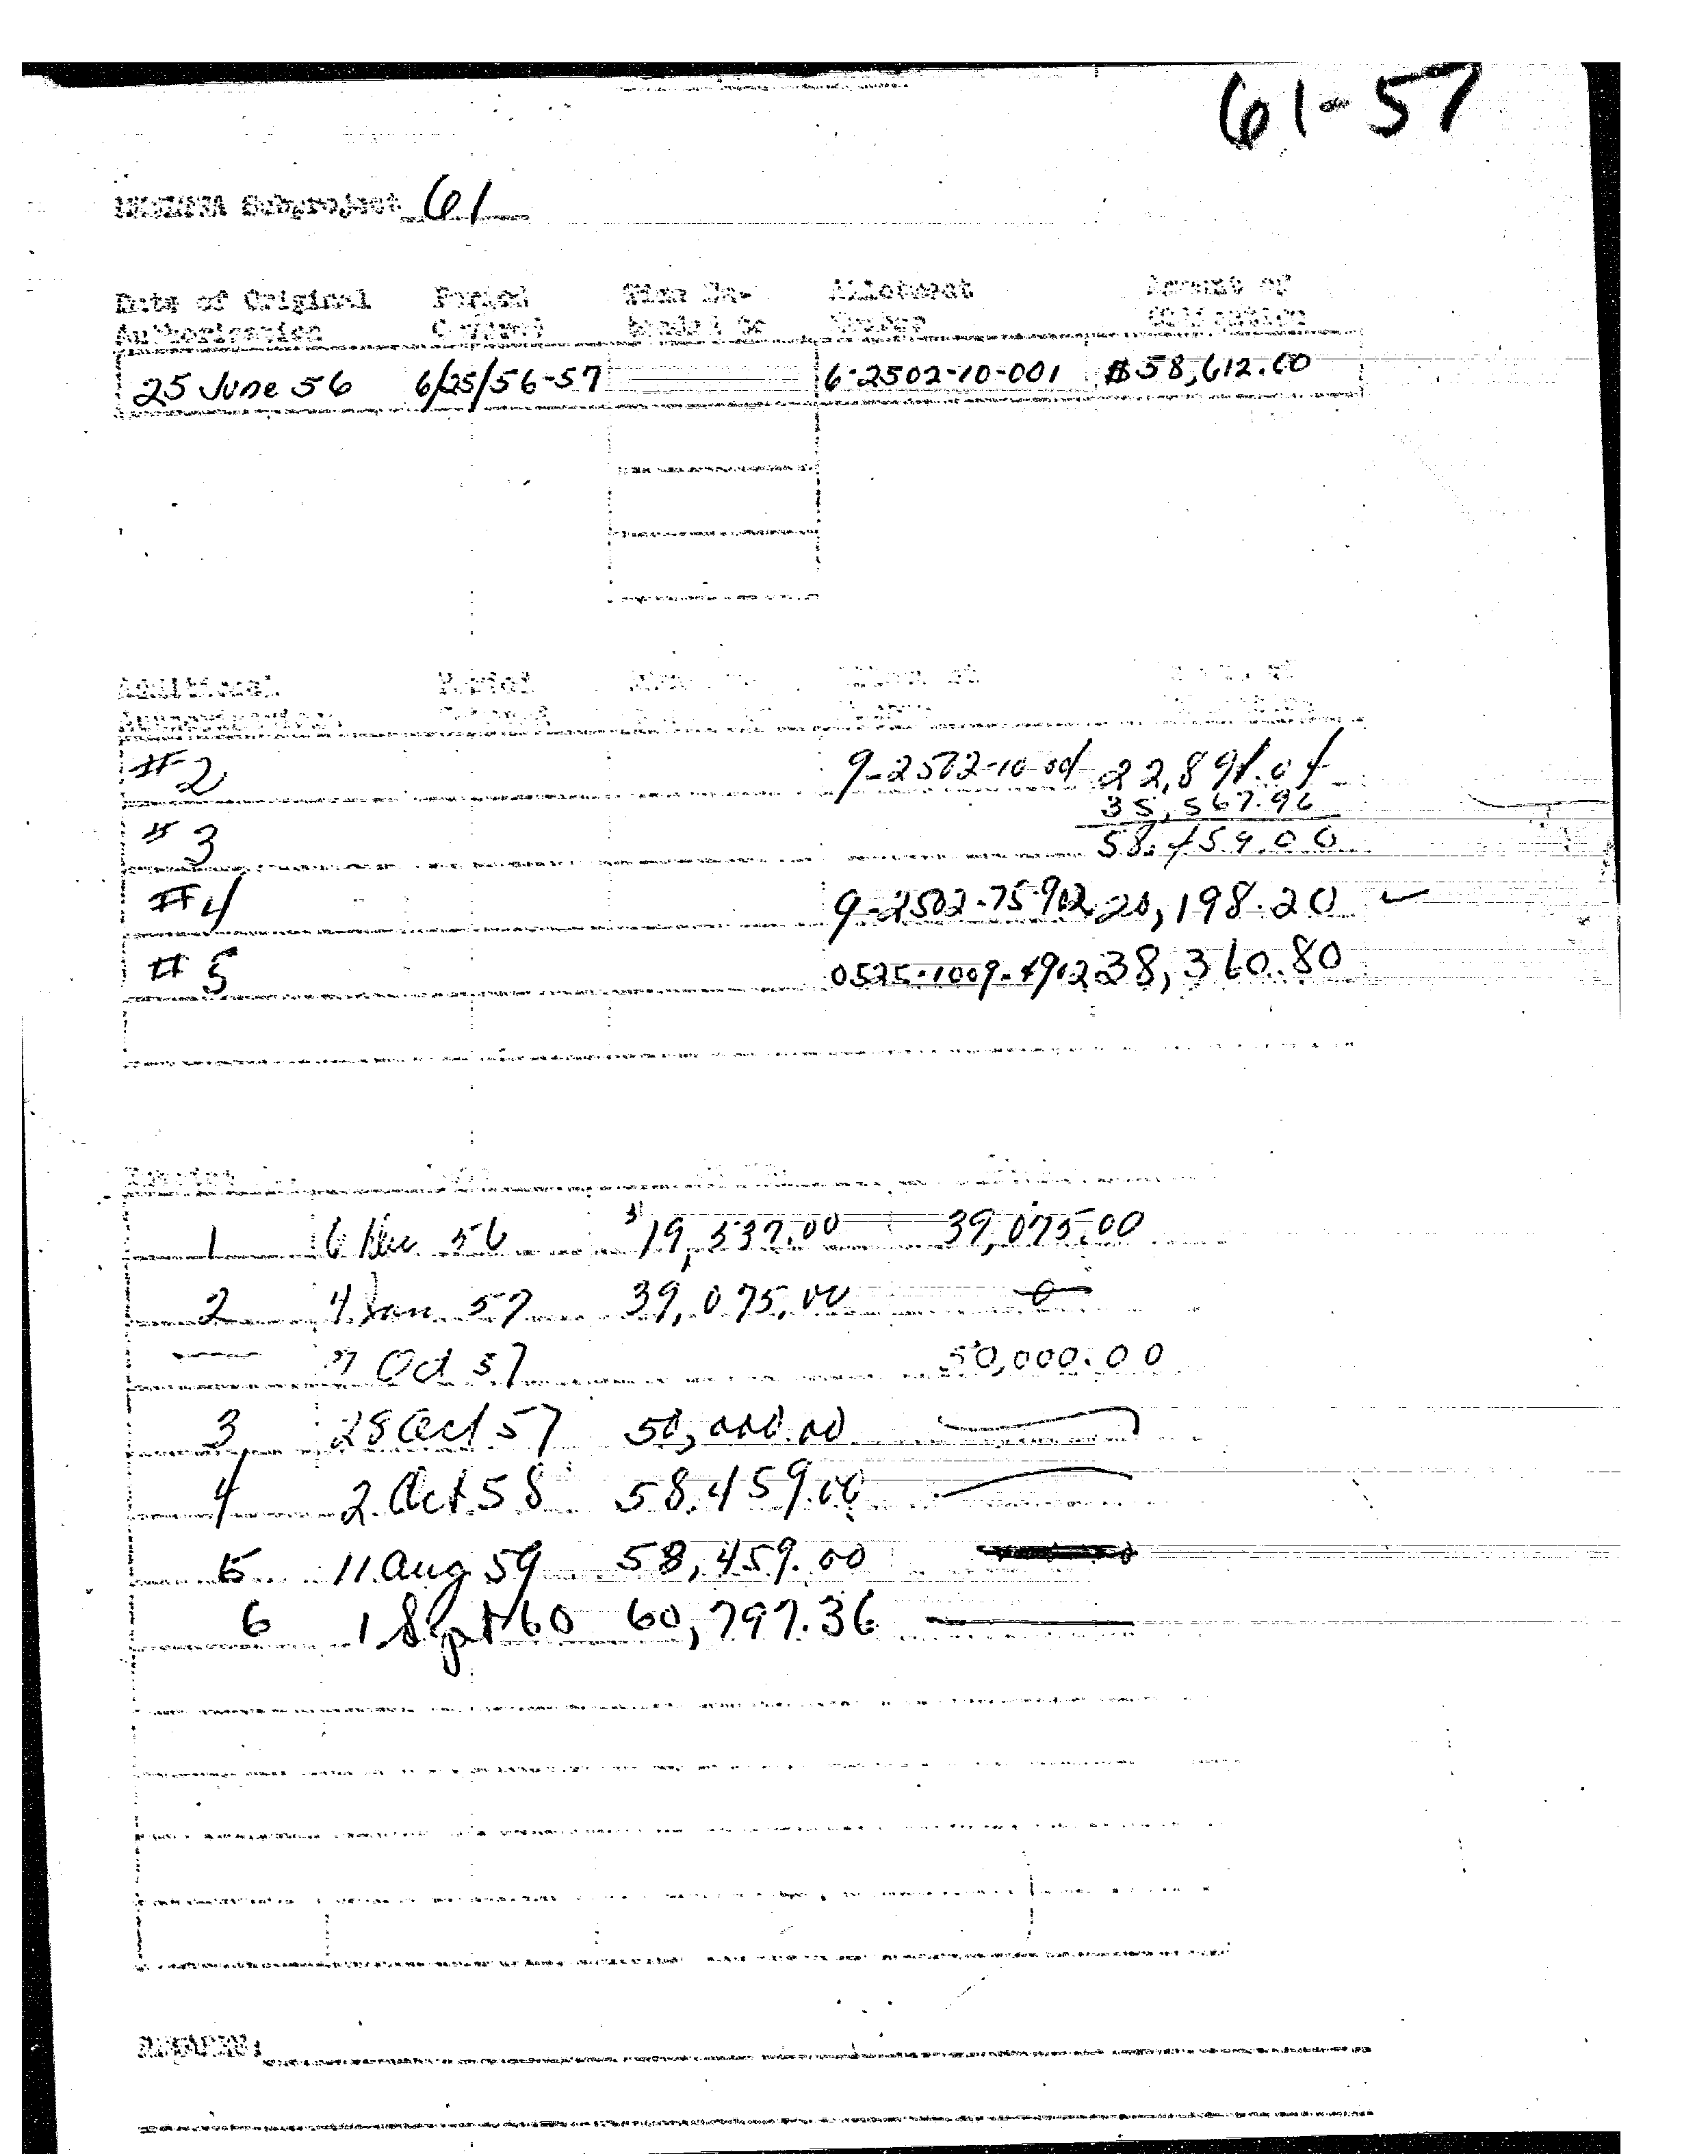 61-57
MKULTRA Subproject 61
Date of Original Period Time Ex- Allotment Amount of
Authorization Covered tended to Number Obligation
25 June 56 6/25/56-57 6-2502-10-001 $58,612.00
Additional Period
#2 9-2502-10-001 22,891.04
35,567.96
#3 58,459.00
#4 9-2502-75-902 20,198.20
#5 0525-1009-4902 38,360.80
Invoice
1 6 Dec 56 $19,537.00 39,075.00
2 4 Jan 57 39,075.00 0
7 Oct 57 50,000.00
3 28 Oct 57 50,000.00
4 2 Oct 58 58,459.00
5 11 Aug 59 58,459.00
6 1 Sept 60 60,797.36
REMARKS: